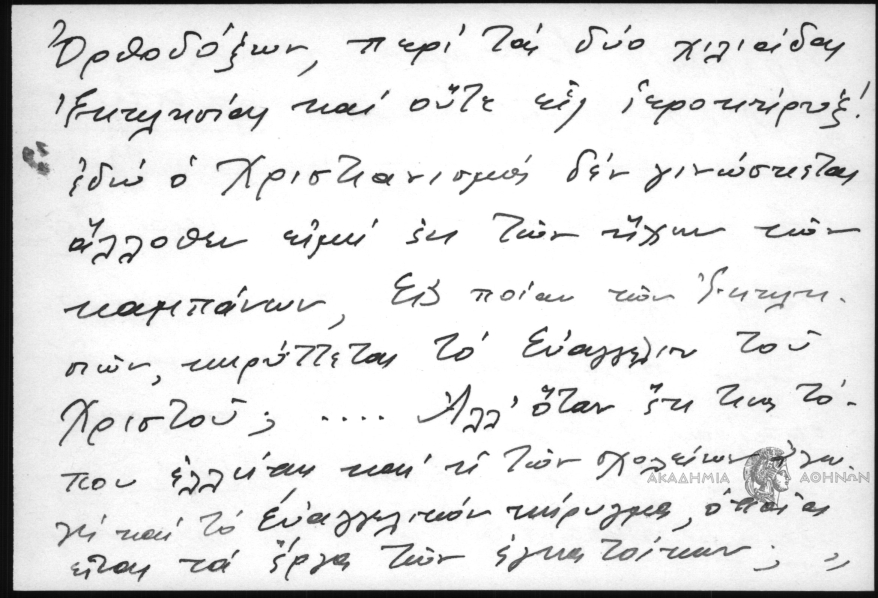 Ὀρθοδόξων, περί τάς δύο χιλιάδας
Ἐκκλησίας καί οὔτε εἷς ἱεροκήρυξ!
ἐδώ ὁ Χριστιανισμός δέν γινώσκεται
ἄλλοθεν εἰμή ἐκ τῶν ἤχων τῶν
καμπάνων, Εἰς ποίαν τῶν Ἐκκλη-
σιῶν, κηρύττεται τό Εὐαγγέλιον τοῦ
Χριστοῦ; .... Ἀλλ' ὅταν ἔκ τινος τό-
που ἐλλείπῃ καί ἡ τῶν σχολείων
καί τό Εὐαγγελικόν κήρυγμα, ὁποῖα
εἶναι τά ἔργα τῶν ἐγκατοίκων; ,,
ΑΚΑΔΗΜΙΑ ΑΘΗΝΩΝ